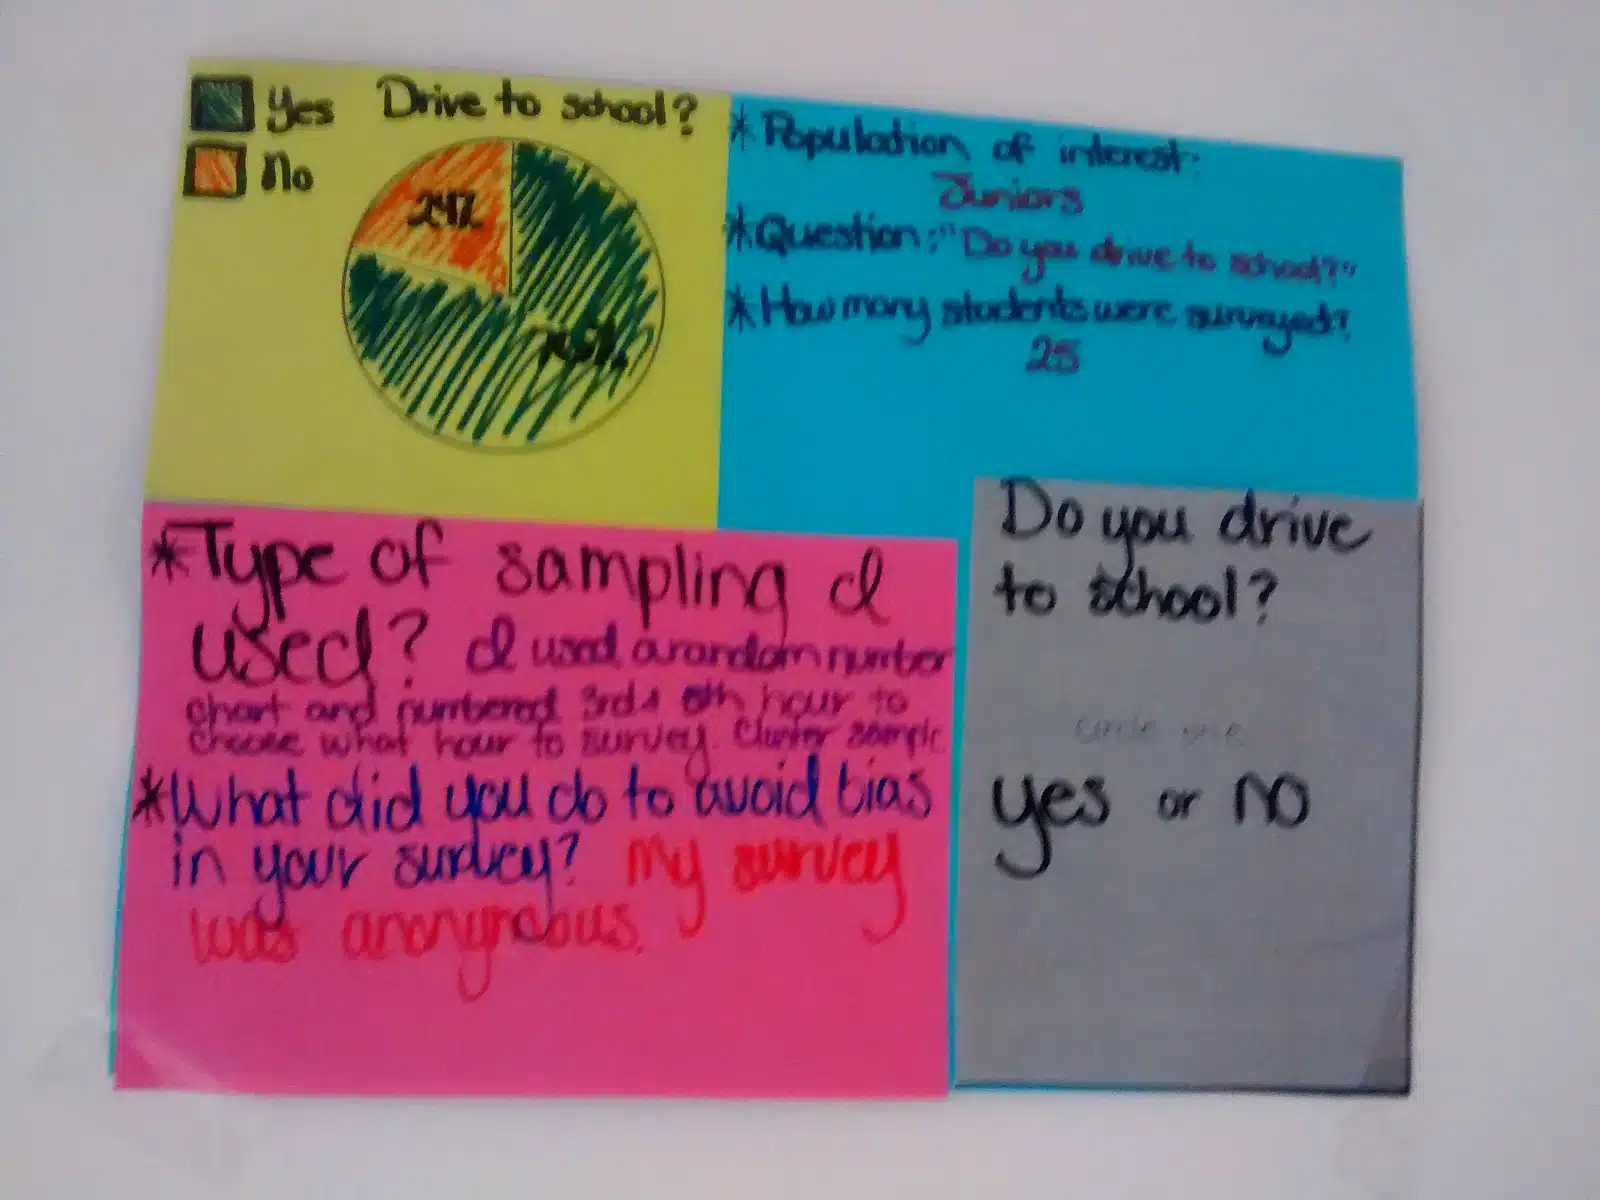 Yes
No
Drive to school?
24%
76%
*Population of interest:
Juniors
*Question: "Do you drive to school?"
*How many students were surveyed?
25
*Type of sampling I
used? I used a random number
chart and numbered 3rd & hour to
choose what hour to survey. Cluster sample
*What did you do to avoid bias
in your survey? My survey
was anonymous.
Do you drive
to school?
circle one
yes or no